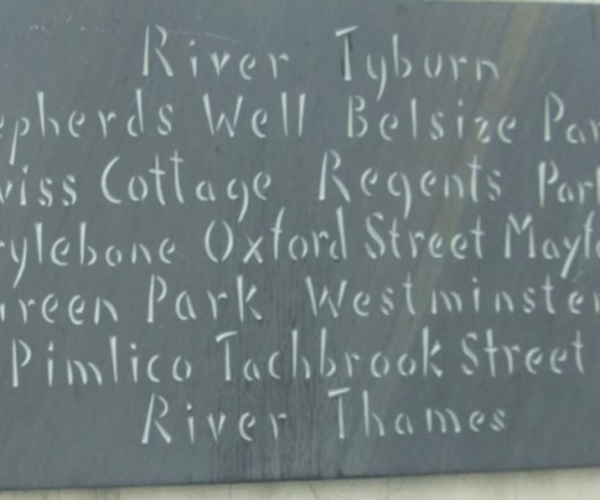 River Tyburn
epherds Well Belsize Par
wiss Cottage Regents Park
rylebone Oxford Street Mayfa
Green Park Westminster
Pimlico Tachbrook Street
River Thames